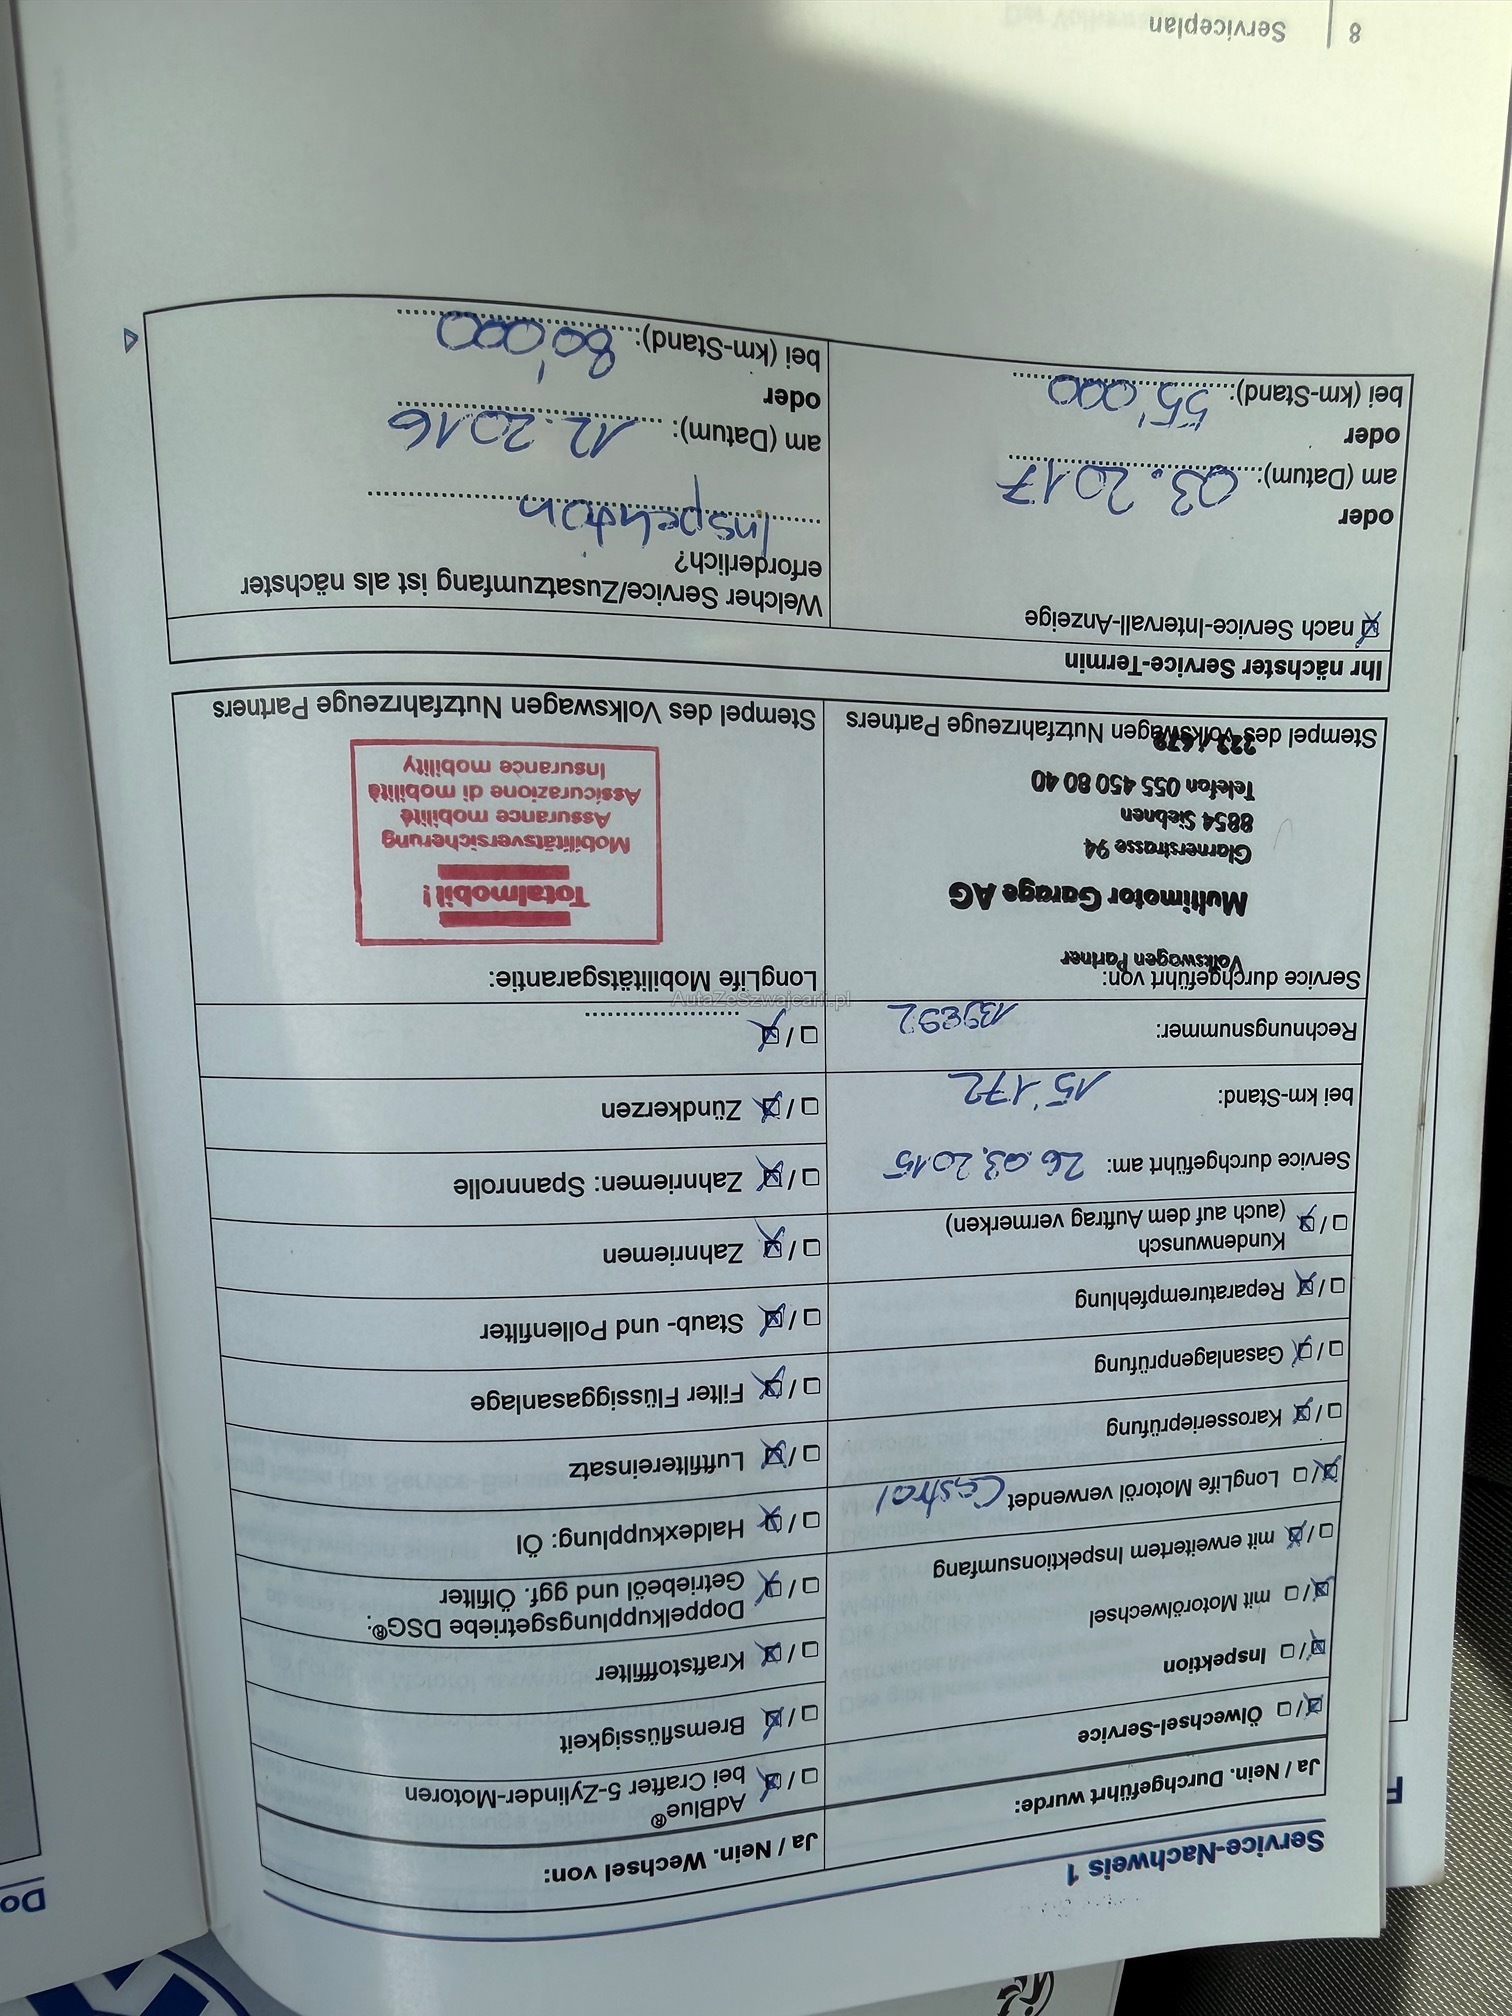 Service-Nachweis 1
Ja / Nein. Durchgeführt wurde:
Ölwechsel-Service
Inspektion
mit Motorölwechsel
mit erweitertem Inspektionsumfang
LongLife Motoröl verwendet Castrol
Karosserieprüfung
Gasanlagenprüfung
Reparaturempfehlung
Kundenwunsch
(auch auf dem Auftrag vermerken)
Service durchgeführt am: 26.03.2015
bei km-Stand: 15'172
Rechnungsnummer: 139892
Service durchgeführt von:
Volkswagen Partner
Multimotor Garage AG
Glarnerstrasse 94
8854 Siebnen
Telefon 055 450 80 40
Stempel des Volkswagen Nutzfahrzeuge Partners
Ja / Nein. Wechsel von:
AdBlue®
bei Crafter 5-Zylinder-Motoren
Bremsflüssigkeit
Kraftstofffilter
Doppelkupplungsgetriebe DSG®:
Getriebeöl und ggf. Ölfilter
Haldexkupplung: Öl
Luftfiltereinsatz
Filter Flüssiggasanlage
Staub- und Pollenfilter
Zahnriemen
Zahnriemen: Spannrolle
Zündkerzen
LongLife Mobilitätsgarantie:
Totalmobil!
Mobilitätsversicherung
Assurance mobilité
Assicurazione di mobilità
Insurance mobility
Stempel des Volkswagen Nutzfahrzeuge Partners
Ihr nächster Service-Termin
nach Service-Intervall-Anzeige
oder
am (Datum): 03.2017
oder
bei (km-Stand): 55'000
Welcher Service/Zusatzumfang ist als nächster
erforderlich?
Inspektion
am (Datum): 12.2016
oder
bei (km-Stand): 80'000
8 Serviceplan
Do
AutaZeSzwajcarii.pl